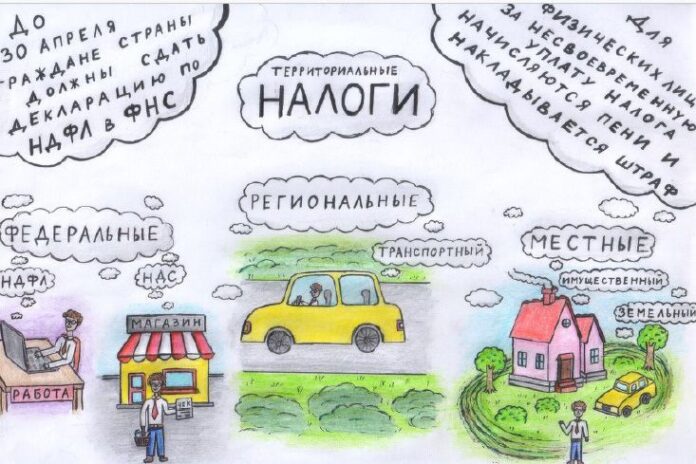 ДО
30 АПРЕЛЯ
ГРАЖДАНЕ СТРАНЫ
ДОЛЖНЫ СДАТЬ
ДЕКЛАРАЦИЮ ПО
НДФЛ в ФНС
ТЕРРИТОРИАЛЬНЫЕ
НАЛОГИ
Для
ФИЗИЧЕСКИХ ЛИЦ
ЗА НЕСВОЕВРЕМЕННУЮ
УПЛАТУ НАЛОГА
НАЧИСЛЯЮТСЯ ПЕНИ И
НАКЛАДЫВАЕТСЯ ШТРАФ
ФЕДЕРАЛЬНЫЕ
НДФЛ
НДС
РАБОТА
МАГАЗИН
ЧЕК
РЕГИОНАЛЬНЫЕ
ТРАНСПОРТНЫЙ
МЕСТНЫЕ
ИМУЩЕСТВЕННЫЙ
ЗЕМЕЛЬНЫЙ